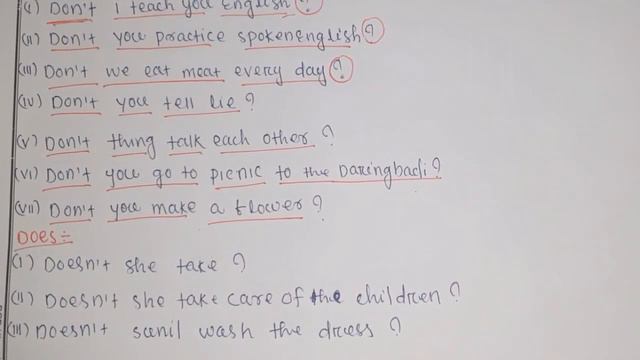 (i) Don't I teach you english?
(ii) Don't you practice spokenenglish?
(iii) Don't we eat meat every day?
(iv) Don't you tell lie?
(v) Don't thing talk each other?
(vi) Don't you go to picnic to the Daringbadi?
(vii) Don't you make a flower?
DOES:-
(i) Doesn't she take?
(ii) Doesn't she take care of the children?
(iii) Doesn't sunil wash the dress?